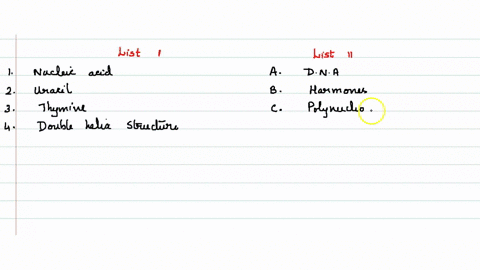 List I
List II
1. Nucleic acid
A. D.N.A
2. Uracil
B. Harmones
3. Thymine
C. Polynucleo
4. Double helix Structure